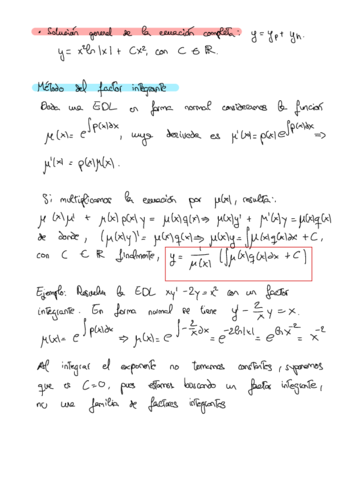 • Solución general de la ecuación completa: y = yp + yh
y = x² ln|x| + Cx², con C ∈ ℝ.
Método del factor integrante
Dada una EDL en forma normal consideramos la función
μ(x) = e^∫p(x)dx, cuya derivada es μ'(x) = p(x)e^∫p(x)dx ⟹
μ'(x) = p(x)μ(x).
Si multiplicamos la ecuación por μ(x), resulta:
μ(x)y' + μ(x)p(x)y = μ(x)q(x) ⟹ μ(x)y' + μ'(x)y = μ(x)q(x)
de donde, (μ(x)y)' = μ(x)q(x) ⟹ μ(x)y = ∫μ(x)q(x)dx + C,
con C ∈ ℝ finalmente, y = 1/μ(x) (∫μ(x)q(x)dx + C)
Ejemplo: Resuelva la EDL xy' - 2y = x² con un factor
integrante. En forma normal se tiene y - 2/x y = x.
μ(x) = e^∫p(x)dx ⟹ μ(x) = e^∫-2/x dx = e^-2ln|x| = e^ln x^-2 = x^-2
Al integrar el exponente no tomamos constantes, suponemos
que es C=0, pues estamos buscando un factor integrante,
no una familia de factores integrantes